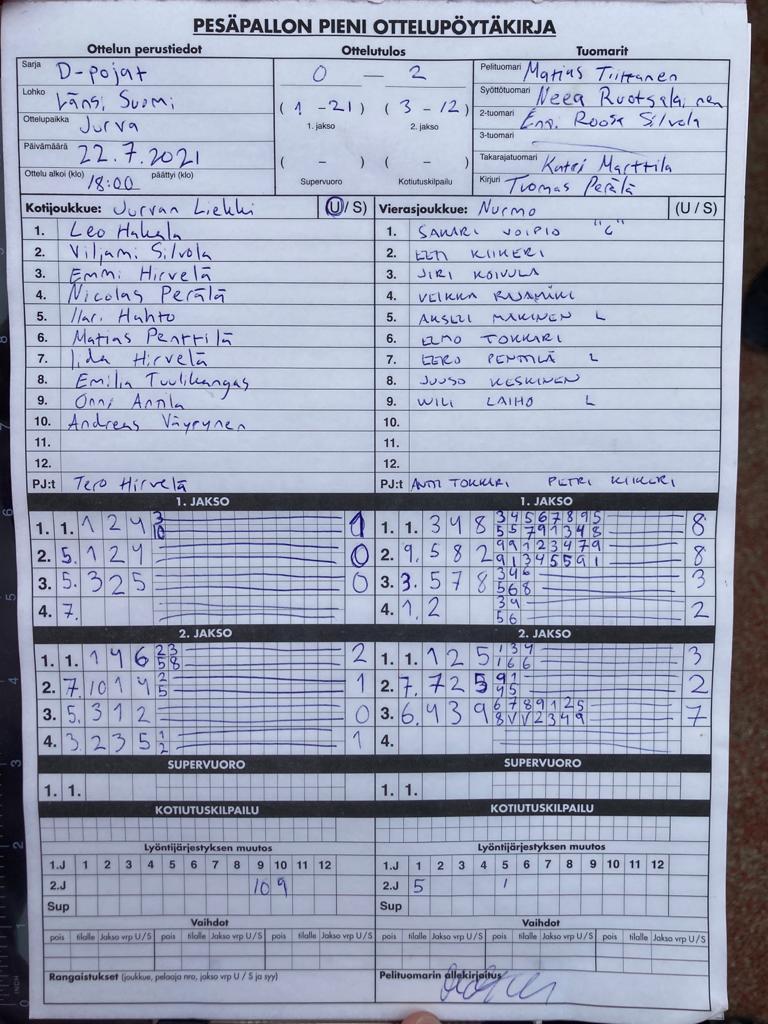 PESÄPALLON PIENI OTTELUPÖYTÄKIRJA
Ottelun perustiedot
Sarja D-pojat
Lohko Länsi Suomi
Ottelupaikka Jurva
Päivämäärä 22.7.2021
Ottelu alkoi (klo) 18:00 päättyi (klo)
Ottelutulos
0 — 2
( 1 - 21 ) ( 3 - 12 )
1. jakso 2. jakso
( - ) ( - )
Supervuoro Kotiutuskilpailu
Tuomarit
Pelituomari Matias Tiittanen
Syöttötuomari Neea Ruotsalainen
2-tuomari Roosa Silvola
3-tuomari
Takarajatuomari Katri Marttila
Kirjuri Tuomas Perälä
Kotijoukkue: Jurvan Liekki (U/ S)
1. Leo Hakala
2. Viljami Silvola
3. Emmi Hirvelä
4. Nicolas Perälä
5. Ilari Huhto
6. Matias Penttilä
7. Iida Hirvelä
8. Emilia Tuulikangas
9. Onni Anttila
10. Andreas Väyrynen
11.
12.
PJ:t Tero Hirvelä
Vierasjoukkue: Nurmo (U / S)
1. SAKARI JOIPIO "C"
2. EETI KIIKERI
3. JIRI KOIVULA
4. VEIKKA RAJAMÄKI
5. AKSELI MÄKINEN L
6. ELMO TOKKARI
7. EERO PENTTILÄ L
8. JUUSO KESKINEN
9. WILI LAIHO L
10.
11.
12.
PJ:t ANTTI TOKKARI PETRI KIIKERI
1. JAKSO
1. 1. 1 2 4 3 1
10
2. 5. 1 2 4 0
3. 5. 3 2 5 0
4. 7.
1. JAKSO
1. 1. 3 4 8 3 4 5 6 7 8 9 5 8
5 5 7 9 1 3 4 8
2. 9. 5 8 2 9 9 1 2 3 4 7 9 8
9 1 3 4 5 5 9 1
3. 3. 5 7 8 3 4 6 3
5 6 8
4. 1. 2 3 4 2
5 6
2. JAKSO
1. 1. 1 4 6 2 3 2
5 8
2. 7. 10 1 4 2 1
5
3. 5. 3 1 2 0
4. 3. 2 3 5 1 1
2
2. JAKSO
1. 1. 1 2 5 1 3 4 3
1 6 6
2. 7. 7 2 5 9 1 2
4 5
3. 6. 4 3 9 6 7 8 9 1 2 5 7
8 V V 2 3 4 9
4.
SUPERVUORO
1. 1.
SUPERVUORO
1. 1.
KOTIUTUSKILPAILU
KOTIUTUSKILPAILU
Lyöntijärjestyksen muutos
1.J 1 2 3 4 5 6 7 8 9 10 11 12
2.J 10 9
Sup
Lyöntijärjestyksen muutos
1.J 1 2 3 4 5 6 7 8 9 10 11 12
2.J 5 1
Sup
Vaihdot
pois tilalle Jakso vrp U / S pois tilalle Jakso vrp U / S pois tilalle Jakso vrp U / S
Vaihdot
pois tilalle Jakso vrp U / S pois tilalle Jakso vrp U / S pois tilalle Jakso vrp U / S
Rangaistukset (joukkue, pelaaja nro, jakso vrp U / S ja syy)
Pelituomarin allekirjoitus